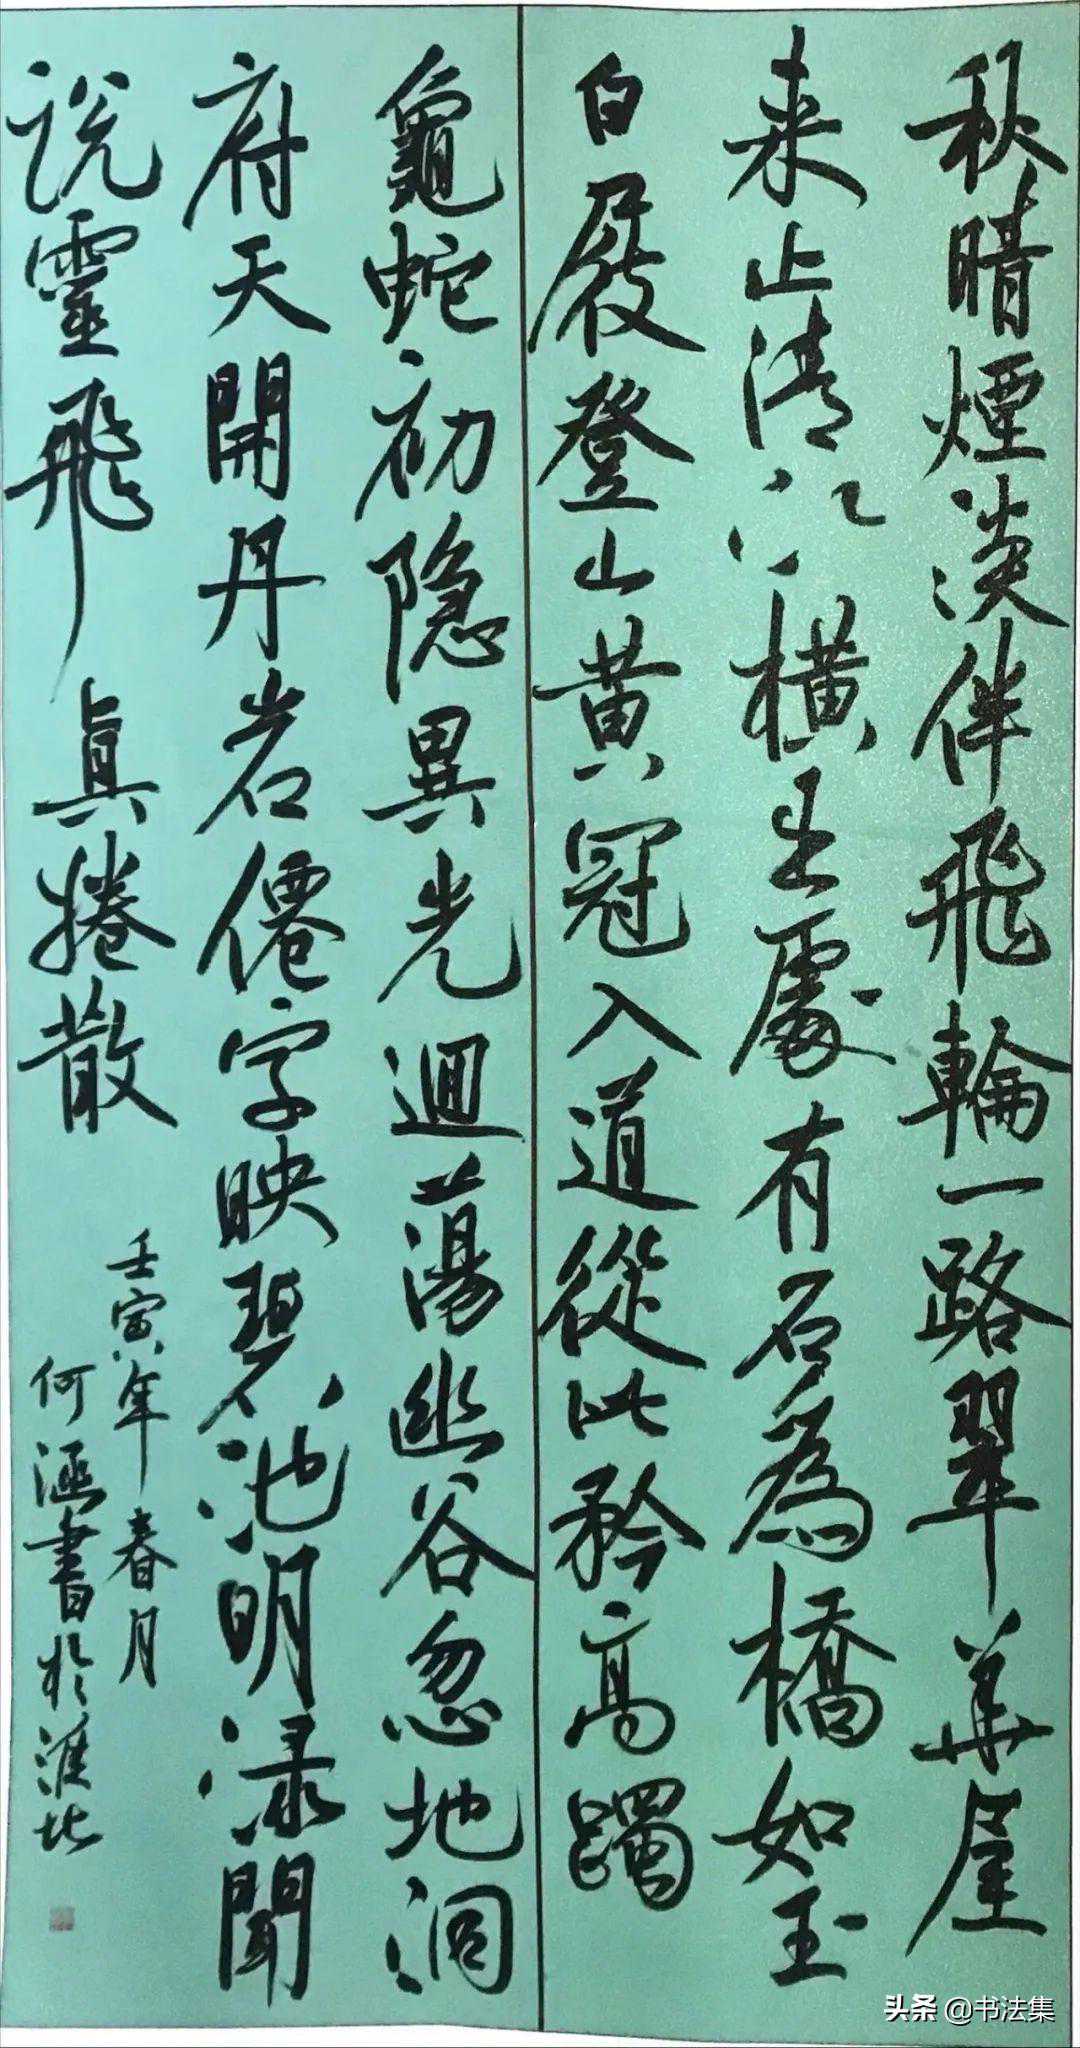 秋晴煙淡伴飛輪一路翠華屋
来止清橫處有石為橋如玉
白屐登山黄冠入道從此矜高躅
龜蛇初隐異光迴蕩幽谷忽地洞
府天開丹岩僊字映碧池明渌聞
説靈飛真捲散
壬寅年春月
何涵書於淮北
头条 @书法集